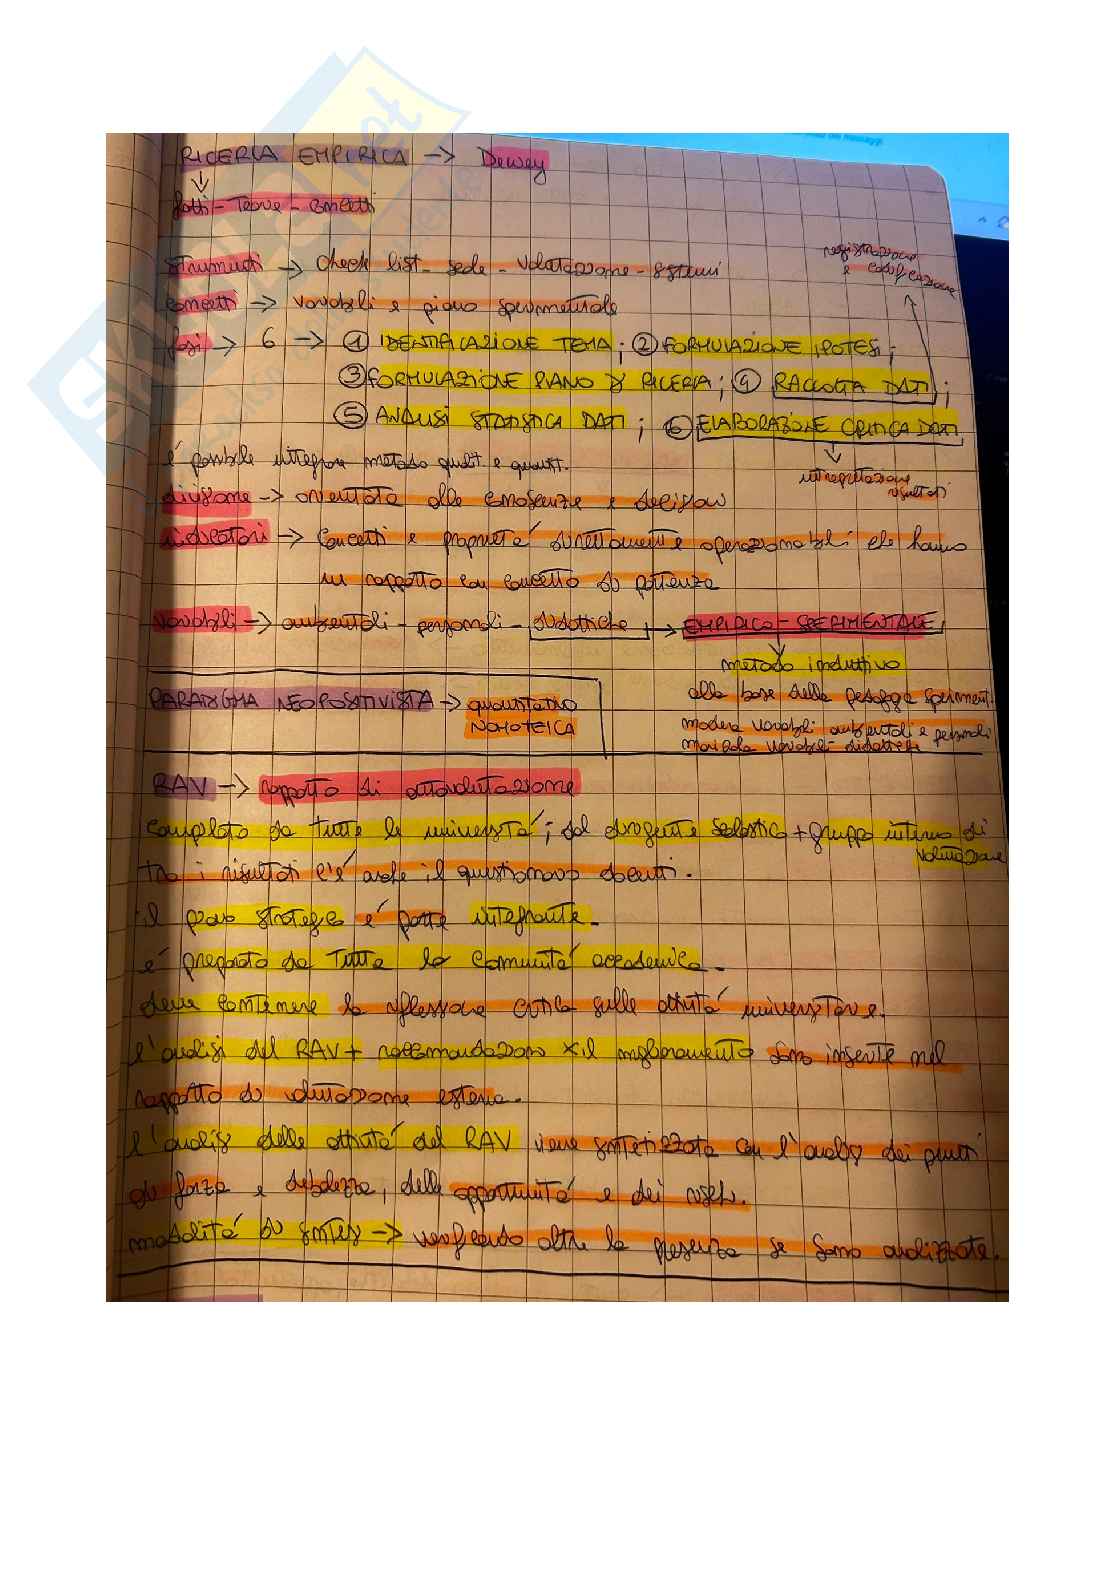 RICERCA EMPIRICA -> Dewey
fatti - Teorie - concetti
strumenti -> check list - sede - valutazione - sistemi
registrazione e codificazione
concetti -> variabili e piano sperimentale
fasi -> 6 -> ① IDENTIFICAZIONE TEMA; ② FORMULAZIONE IPOTESI;
③ FORMULAZIONE PIANO DI RICERCA; ④ RACCOLTA DATI;
⑤ ANALISI STATISTICA DATI; ⑥ ELABORAZIONE CRITICA DATI
interpretazione risultati
é possibile integrare metodo qualit. e quantit.
divisione -> orientata alle conoscenze e decisioni
indicatori -> Concetti e proprietá direttamente operazionabili che hanno
un rapporto con concetto di partenza
variabili -> ambientali - personali - didattiche -> EMPIRICO - SPERIMENTALE
metodo induttivo
alla base della pedagogia speriment.
modera variabili ambientali e personali
manipola variabili didattiche
PARADIGMA NEOPOSITIVISTA -> quantitativo
NOMOTETICA
RAV -> rapporto di autovalutazione
compilato da tutte le universitá; dal dirigente scolastico + gruppo interno di
valutazione
tra i risultati c'é anche il questionario docenti.
il piano strategico é parte integrante.
é preparato da tutta la comunitá accademica.
deve contenere la riflessione critica sulle attivitá universitarie.
l'analisi del RAV + raccomandazioni x il miglioramento sono inserite nel
rapporto di valutazione esterna.
l'analisi delle attivitá del RAV viene sintetizzata con l'analisi dei punti
di forza e debolezza, delle opportunitá e dei rischi.
modalitá di sintesi -> verificando oltre la presenza se sono analizzate.